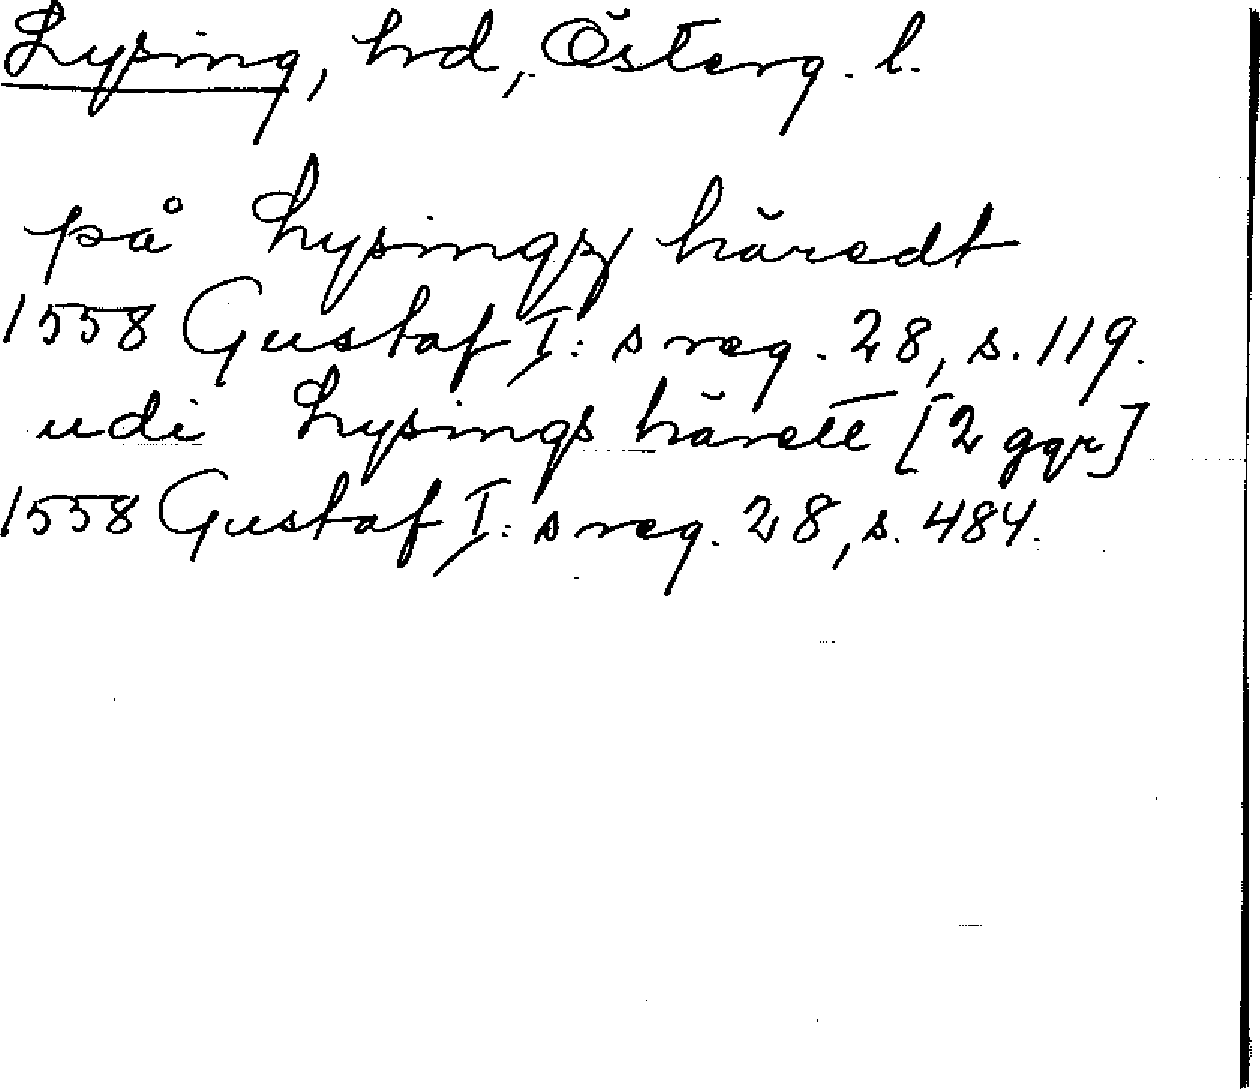 Lysing, hrd, Österg. l.
på Lysingx häredt
1558 Gustaf I:s reg. 28, s. 119.
udi Lysings härett [2 ggr]
1558 Gustaf I:s reg. 28, s. 484.